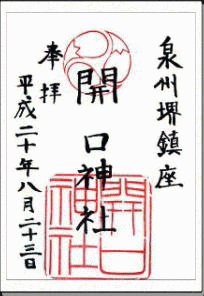 泉州堺鎮座
開口神社
奉拝
平成二十年八月二十三日
開口
神社